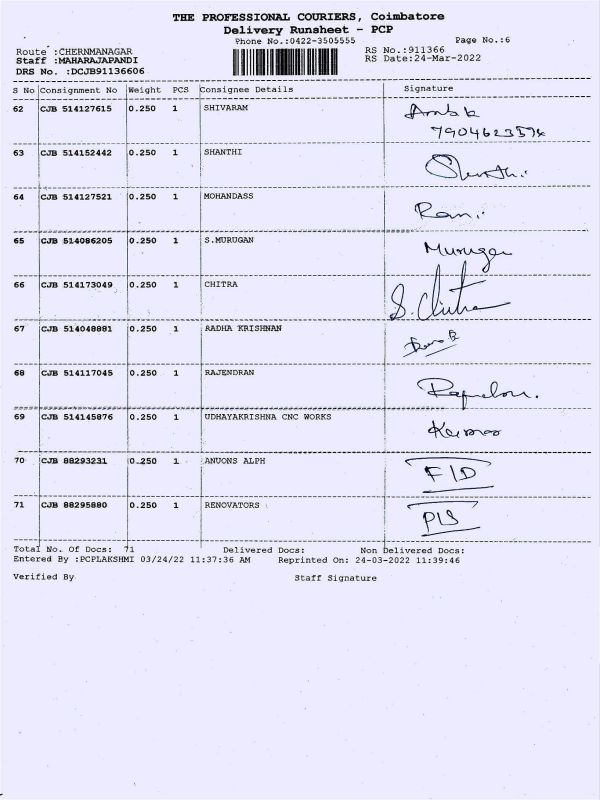 THE PROFESSIONAL COURIERS, Coimbatore
Delivery Runsheet - PCP
Phone No.:0422-3505555 Page No.:6
Route :CHERNMANAGAR RS No.:911366
Staff :MAHARAJAPANDI RS Date:24-Mar-2022
DRS No. :DCJB91136606
S No Consignment No Weight PCS Consignee Details Signature
62 CJB 514127615 0.250 1 SHIVARAM
63 CJB 514152442 0.250 1 SHANTHI Shanthi.
64 CJB 514127521 0.250 1 MOHANDASS Rani.
65 CJB 514086205 0.250 1 S.MURUGAN Murugan
66 CJB 514173049 0.250 1 CHITRA S. Chitra
67 CJB 514048881 0.250 1 RADHA KRISHNAN
68 CJB 514117045 0.250 1 RAJENDRAN
69 CJB 514145876 0.250 1 UDHAYAKRISHNA CNC WORKS Kumar
70 CJB 88293231 0.250 1 ANUONS ALPH F/D
71 CJB 88295880 0.250 1 RENOVATORS P/S
Total No. Of Docs: 71 Delivered Docs: Non Delivered Docs:
Entered By :PCPLAKSHMI 03/24/22 11:37:36 AM Reprinted On: 24-03-2022 11:39:46
Verified By Staff Signature